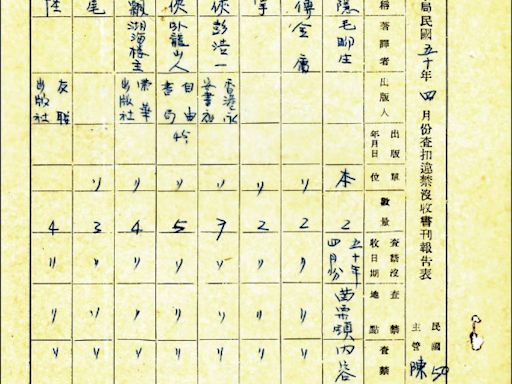 民國 50
主管 陳
局民國五十年四月份查扣違禁沒收書刊報告表
稱 著譯者 出版人 出版年月日 單位 數量 查禁沒收日期 查禁地點 查禁
隱 毛聊生 本 2 五十年四月份 苗栗頭內容
傳 金庸 〃 2 〃 〃 〃
〃 2 〃 〃 〃
俠 彭浩一 香港永安書店 〃 7 〃 〃 〃
俠 臥龍山人 自由書局 〃 5 〃 〃 〃
湖海樓主 榮華出版社 〃 4 〃 〃 〃
尾 〃 3 〃 〃 〃
陸 友聯出版社 4 〃 〃 〃